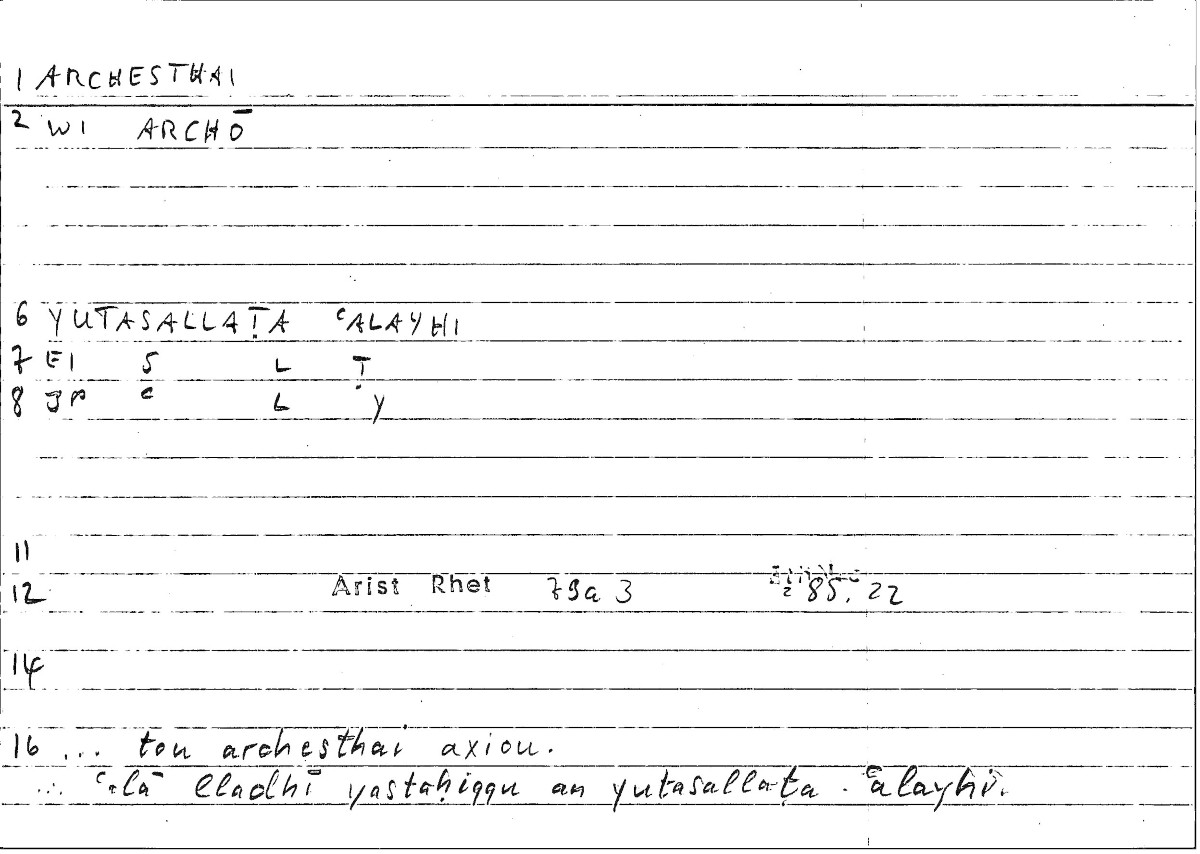 1 ARCHESTHAI
2 WI ARCHŌ
6 YUTASALLAṬA ʿALAYHI
7 EI S L Ṭ
8 JP ʿ L Y
11
12 Arist Rhet 79a 3 85.22
14
16 ... tou archesthai axiou.
... ʿalā lladhī yastaḥiqqu an yutasallaṭa ʿalayhi.